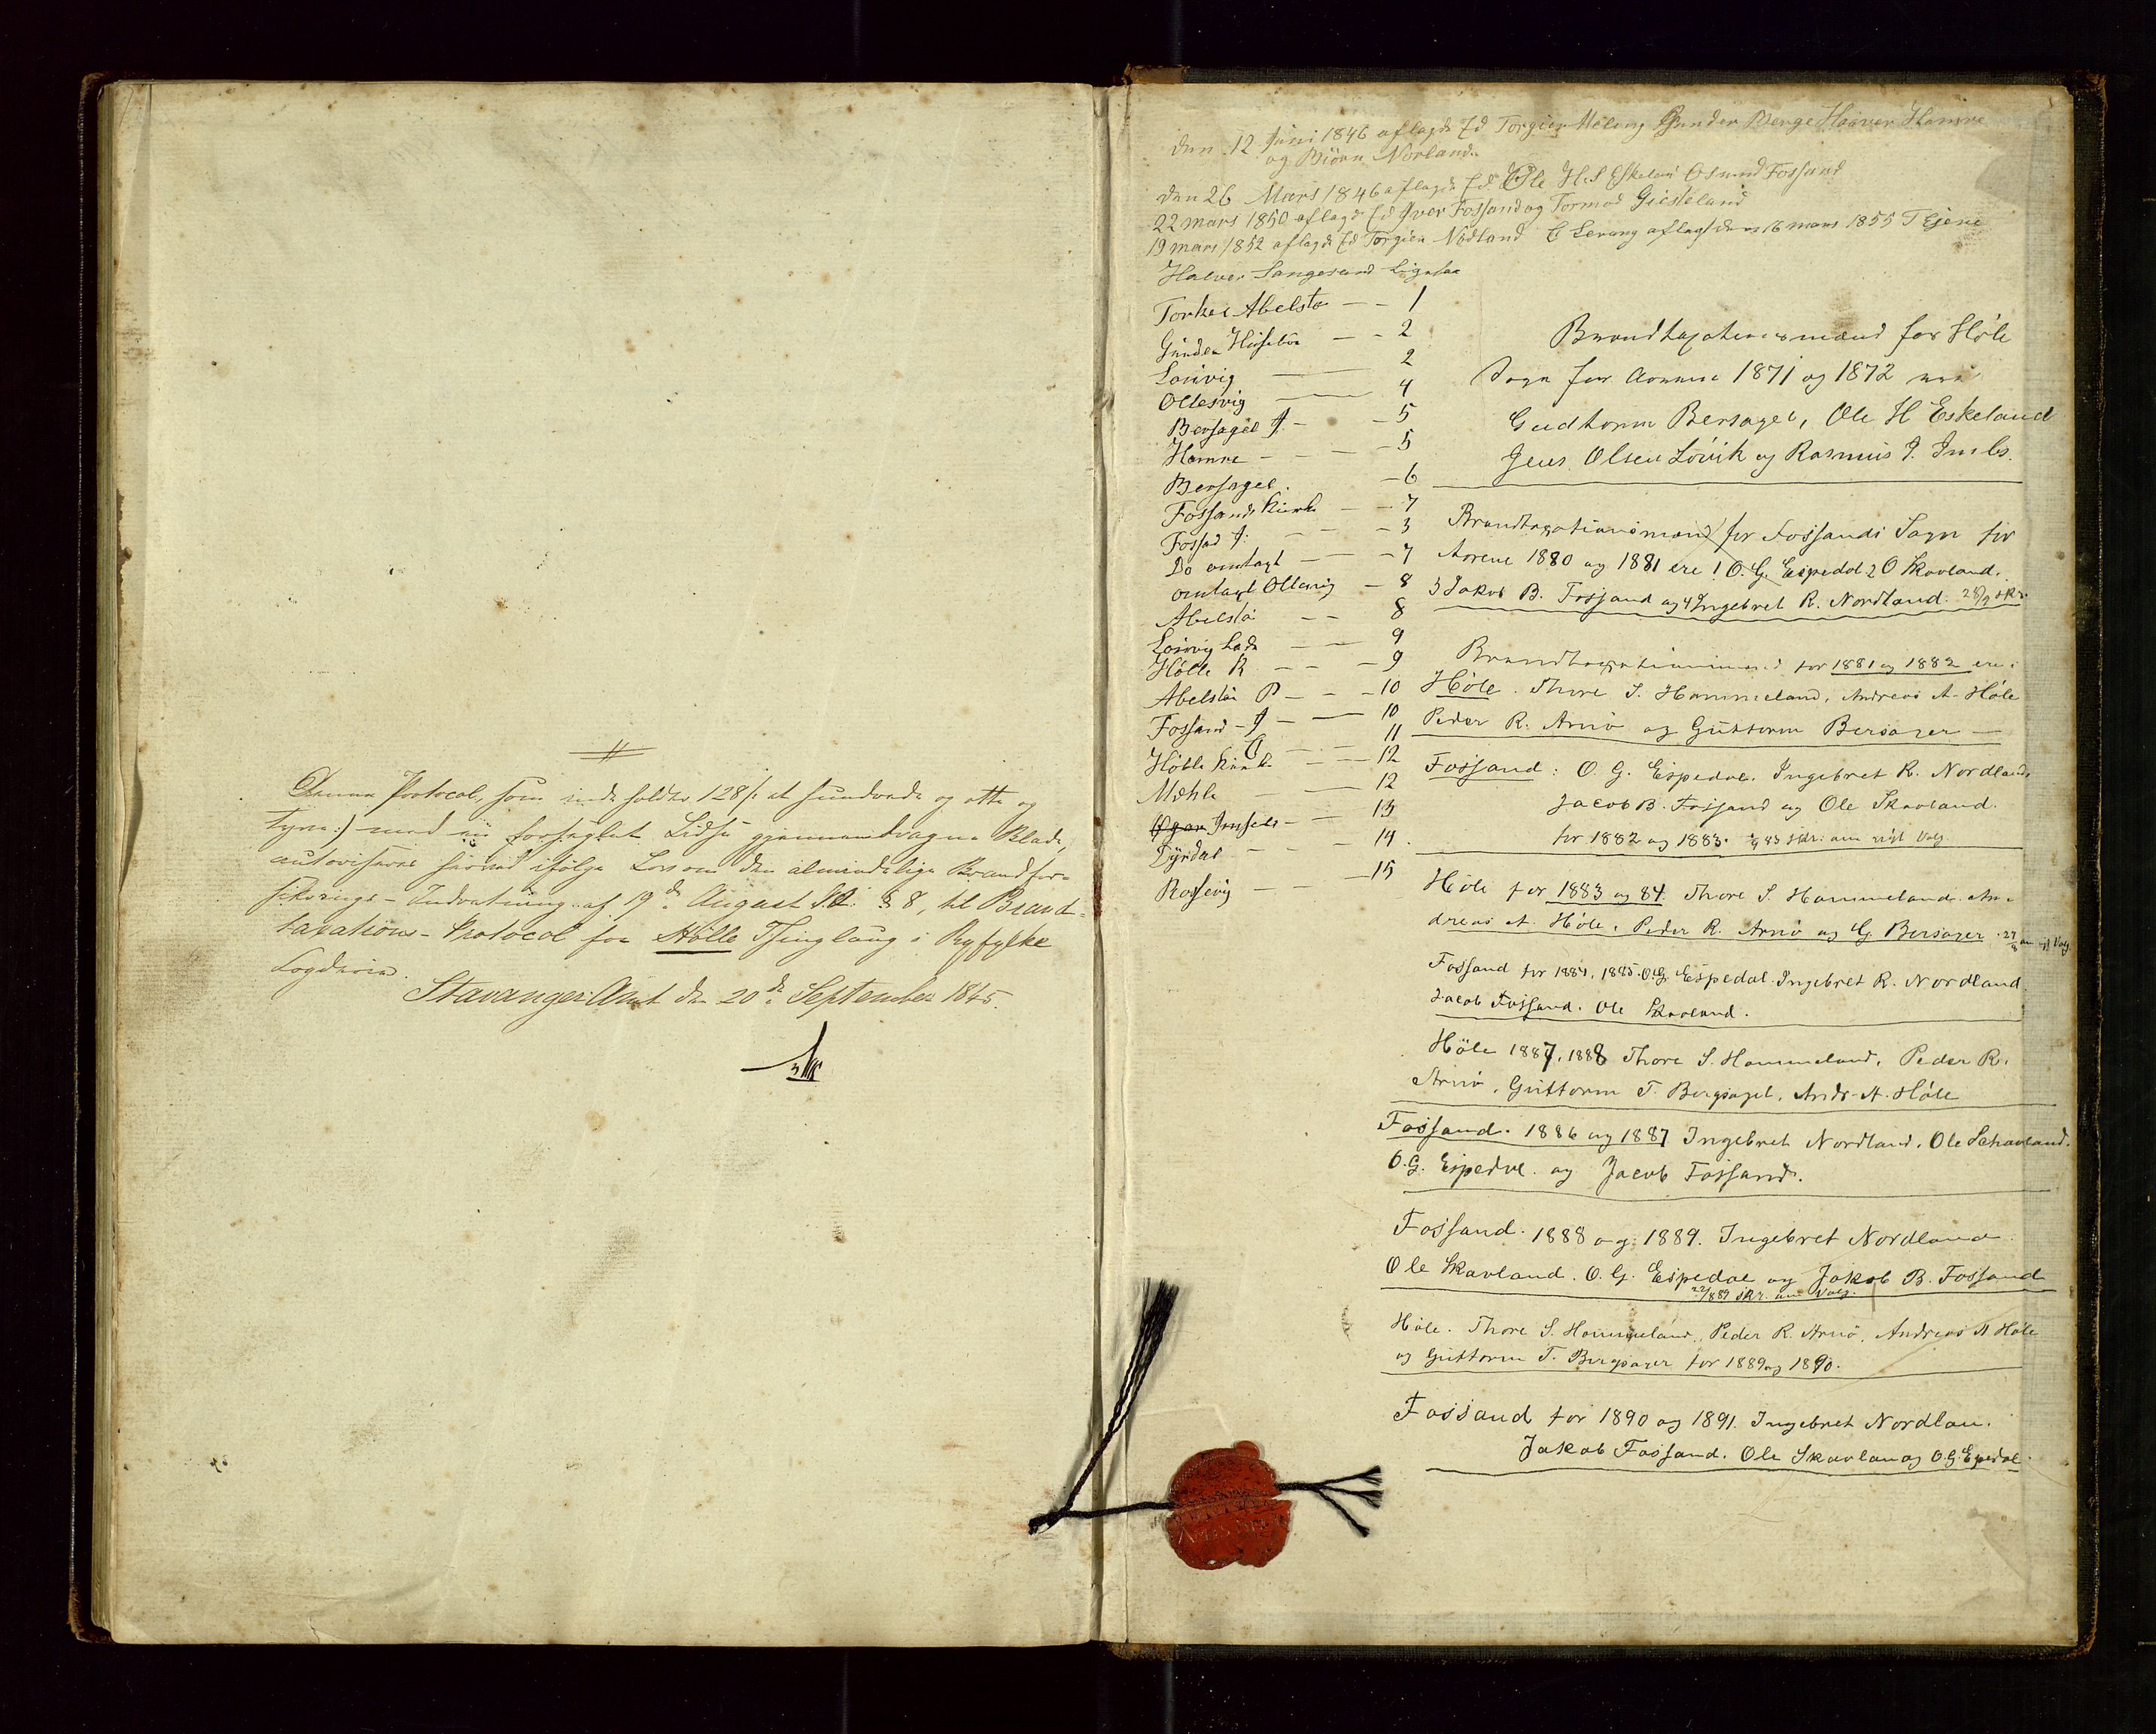 Denne Protocol, som indeholder 128 /: et hundrede og otte og
tyve :/ med en forseglet Lidse gjennemdragne Blade,
autoriseres herved ifølge Lov om den almindelige Brandfor-
sikrings-Indretning af 19de August 1845 § 8, til Brand-
taxations-Protocol for Hølle Thinglaug i Ryfylke
Fogderie.
Stavanger Amt den 20de September 1845.
den 12 Juni 1846 aflagde Ed Torgier Meling Gunder Berge Haaver Hamre
og Biörn Norland.
den 26 Mars 1846 aflagde Ed Ole H.S Eskeland Osmund Fossand
22 mars 1850 aflagde Ed Iver Fossand og Tormod Giesteland
19 mars 1852 aflagde Ed Torgier Nødland E Lerang aflagt den 16 mars 1855 T Eiene
Halvor Langesand
Torkel Abelstø — - 1
Gunder — - 2
Løivig — 2
Ollesvig — 4
Bersagel J - - 5
Hamre - - - 5
Bersagel. - 6
Fossands Kirke - - 7
Fossand J: - - 3
Do omtagt — - 7
omtagt Ollesvig - 8
Abelstø - - 8
Løivig Lade - - 9
Hölle R - - - 9
Abelstø P - - - 10
Fossand - J - — 10
O - - 11
Hölle Kirke - - 12
Mæhle — 12
Imsels - - 13
Dÿrdal - - - 14.
Rossevig - - 15
Brandtaxationsmænd for Høle
Sogn for Aarene 1871 og 1872
Gudtorm Bersagel, Ole H Eskeland
Jens Olsen Löivik og Rasmus J. Imbs.
Brandtaxationsmænd for Fossands Sogn for
Aarene 1880 og 1881 ere 1 O. G. Espedal 2 O Skavland.
3 Jakob B. Fossand og 4 Ingebret R. Nordland.
Brandtaxationsmænd for 1881 og 1882 ere:
Høle. Thore S. Hommeland, Andreas A. Høle
Peder R. Arnø og Guttorm Bersager —
Fossand: O. G. Espedal, Ingebret R. Nordland,
Jacob B. Fossand og Ole Skavland.
for 1882 og 1883. om nyt Valg.
Høle for 1883 og 84. Thore S. Hommeland. An-
dreas A. Høle, Peder R. Arnø og G. Bersager. om nyt Valg
Fossand for 1884, 1885. O.G. Espedal. Ingebret R. Nordland
Jacob Fossand. Ole Skavland.
Höle 1887, 1888 Thore S. Hommeland, Peder R.
Arnø, Guttorm T. Bergsagel, Andr. A. Høle
Fossand. 1886 og 1887 Ingebret Nordland. Ole Schavland.
O.G. Espedal og Jacob Fossand.
Fossand. 1888 og 1889. Ingebret Nordland
Ole Skavland. O. G. Espedal og Jakob B. Fossand
22/8 89 skr. om Valg.
Høle. Thore S. Hommeland, Peder R. Arnø, Andreas A Høle
og Guttorm T. Bergsager for 1889 og 1890.
Fossand for 1890 og 1891. Ingebret Nordlan.
Jakob Fossand. Ole Skavlan og O.G. Espedal.